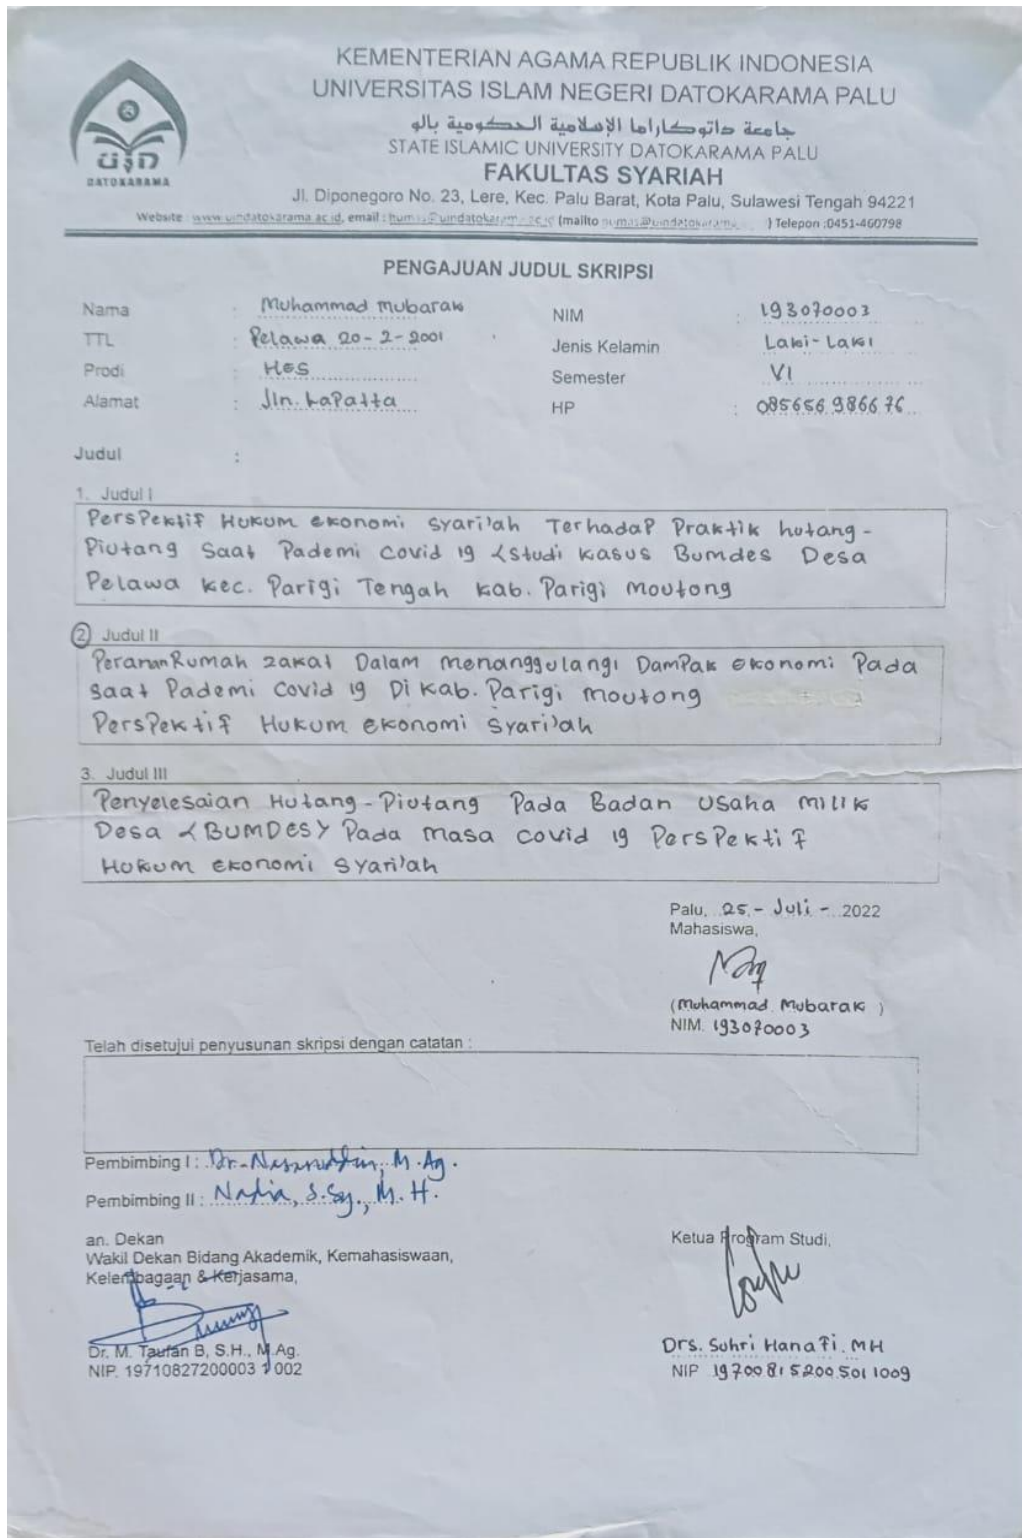 KEMENTERIAN AGAMA REPUBLIK INDONESIA
UNIVERSITAS ISLAM NEGERI DATOKARAMA PALU
جامعة داتوكاراما الإسلامية الحكومية بالو
STATE ISLAMIC UNIVERSITY DATOKARAMA PALU
FAKULTAS SYARIAH
DATOKARAMA
Jl. Diponegoro No. 23, Lere, Kec. Palu Barat, Kota Palu, Sulawesi Tengah 94221
Website : www.uindatokarama.ac.id, email : humas@uindatokarama.ac.id (mailto ) Telepon :0451-460798
PENGAJUAN JUDUL SKRIPSI
Nama : Muhammad Mubarak NIM : 193070003
TTL : Pelawa 20-2-2001 Jenis Kelamin Laki-Laki
Prodi HES Semester VI
Alamat : Jln. LaPatta HP : 085656986676
Judul :
1. Judul I
PersPektif Hukum ekonomi syari'ah TerhadaP Praktik hutang-
Piutang Saat Pademi Covid 19 <Studi kasus Bumdes Desa
Pelawa Kec. Parigi Tengah kab. Parigi moutong
2 Judul II
Peranan Rumah zakat Dalam menanggulangi DamPak ekonomi Pada
Saat Pademi Covid 19 Di Kab. Parigi moutong
PersPektif Hukum ekonomi Syari'ah
3. Judul III
Penyelesaian Hutang-Piutang Pada Badan Usaha milik
Desa <BUMDES> Pada masa covid 19 PersPektif
Hukum ekonomi Syari'ah
Palu, 25 - Juli - 2022
Mahasiswa,
(Muhammad Mubarak)
NIM. 193070003
Telah disetujui penyusunan skripsi dengan catatan :
Pembimbing I : Dr. Nasaruddin, M.Ag.
Pembimbing II : Nadia, S.Sy., M.H.
an. Dekan
Wakil Dekan Bidang Akademik, Kemahasiswaan,
Kelembagaan & Kerjasama,
Dr. M. Taufan B, S.H., M.Ag.
NIP. 19710827200003 1 002
Ketua Program Studi,
Drs. Suhri Hanafi. MH
NIP 197008152005011009